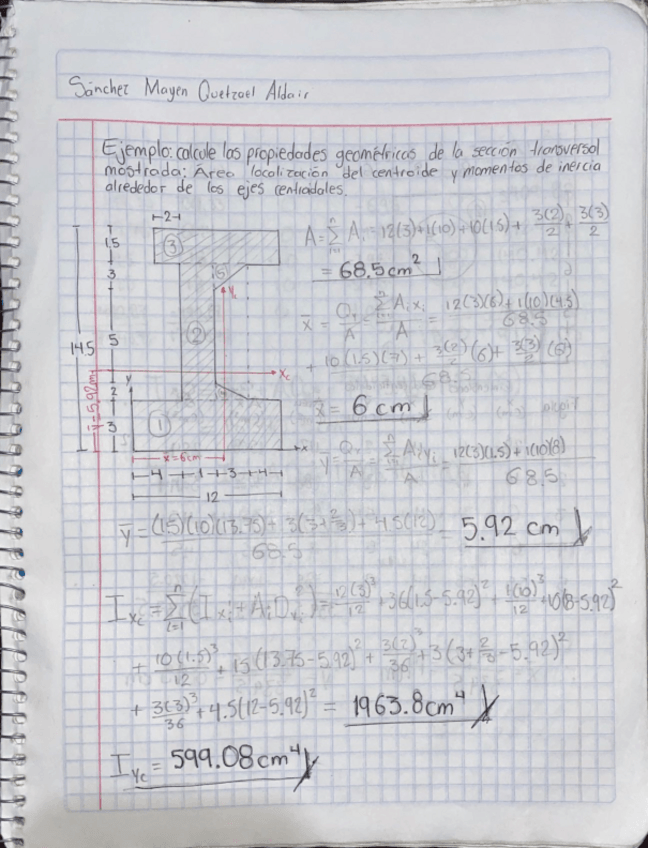 Sánchez Mayen Quetzael Aldair
Ejemplo: calcule las propiedades geométricas de la sección transversal
mostrada: Area localización del centroide y momentos de inercia
alrededor de los ejes centroidales.
A = Σ Ai = 12(3)+1(10)+10(1.5)+ 3(2)/2 + 3(3)/2
= 68.5cm²
x̄ = Qy/A = Σ Ai xi / A = 12(3)(6)+1(10)(4.5) / 68.5
+ 10(1.5)(7) + 3(2)/2 (6) + 3(3)/2 (6) / 68.5
x̄ = 6 cm
ȳ = Σ Ai yi / A = 12(3)(1.5)+1(10)(8) / 68.5
2
1.5
3
5
2
3
14.5
ȳ=5.92cm
3
2
1
yc
xc
y
x
x̄=6cm
4 1 3 4
12
ȳ = (1.5)(10)(13.75)+ 3(3+2/3)+ 4.5(12) / 68.5 = 5.92 cm
Ixc = Σ(Ixi + Ai Dyi²) = 12(3)³/12 + 36(1.5-5.92)² + 1(10)³/12 + 10(8-5.92)²
+ 10(1.5)³/12 + 15(13.75-5.92)² + 3(2)³/36 + 3(3+2/3-5.92)²
+ 3(3)³/36 + 4.5(12-5.92)² = 1963.8cm⁴
Iyc = 599.08cm⁴